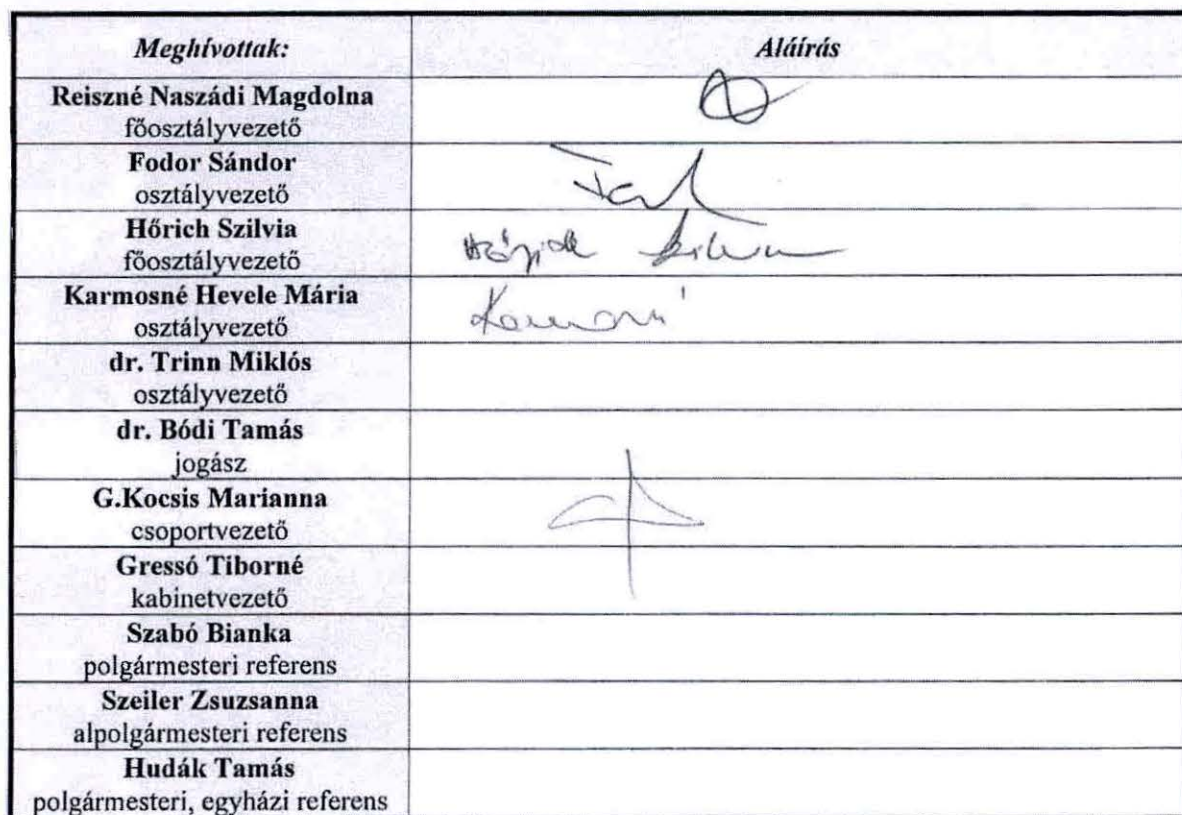 Meghívottak: Aláírás
Reiszné Naszádi Magdolna
főosztályvezető
Fodor Sándor
osztályvezető
Hőrich Szilvia
főosztályvezető
Karmosné Hevele Mária
osztályvezető
dr. Trinn Miklós
osztályvezető
dr. Bódi Tamás
jogász
G.Kocsis Marianna
csoportvezető
Gressó Tiborné
kabinetvezető
Szabó Bianka
polgármesteri referens
Szeiler Zsuzsanna
alpolgármesteri referens
Hudák Tamás
polgármesteri, egyházi referens